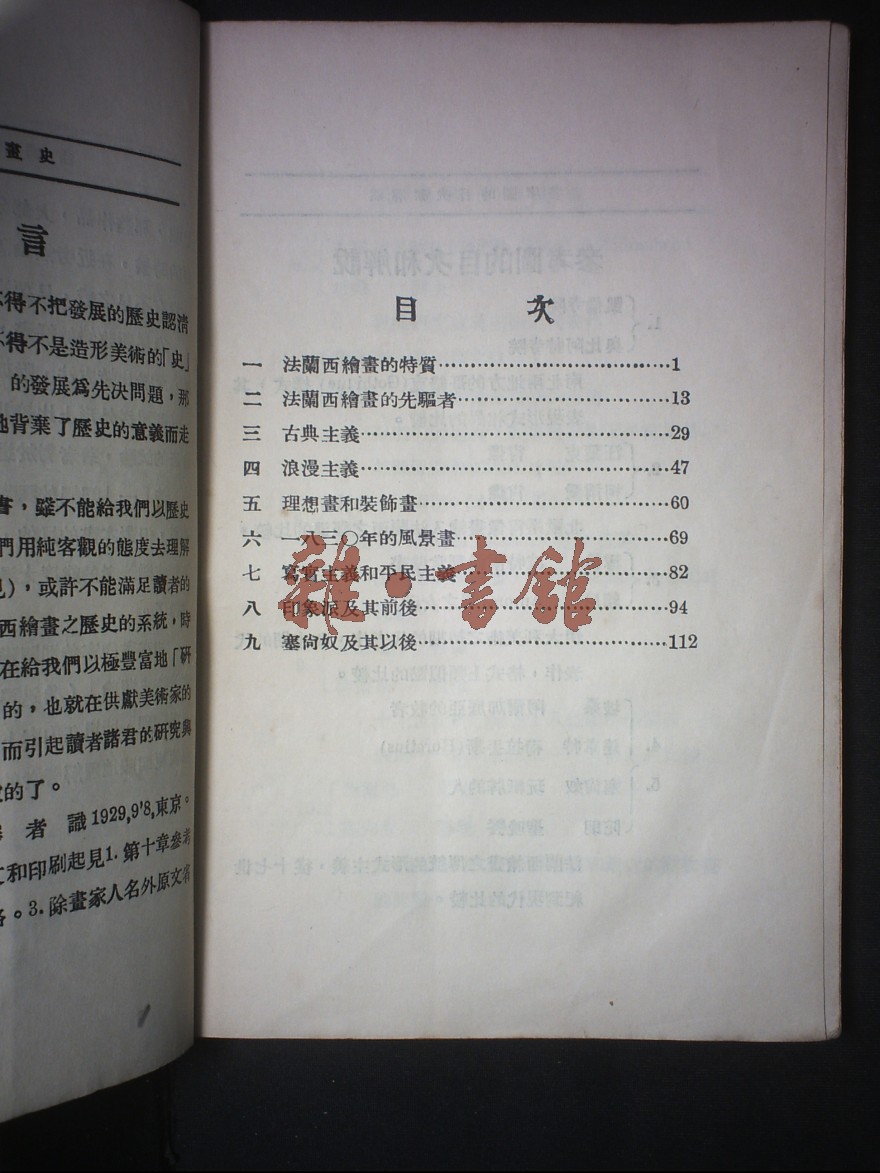 畫史
言
不得不把發展的歷史認清
不得不是造形美術的「史」
的發展爲先決問題，那
地背棄了歷史的意義而走
書，雖不能給我們以歷史
們用純客觀的態度去理解
見），或許不能滿足讀者的
西繪畫之歷史的系統，時
在給我們以極豐富地「研
的，也就在供獻美術家的
而引起讀者諸君的研究與
的了。
者識1929,9'8,東京。
和印刷起見1.第十章參考
。3.除畫家人名外原文
目次
一 法蘭西繪畫的特質……………………………1
二 法蘭西繪畫的先驅者…………………………13
三 古典主義………………………………………29
四 浪漫主義………………………………………47
五 理想畫和裝飾畫………………………………60
六 一八三〇年的風景畫…………………………69
七 寫實主義和平民主義…………………………82
八 印象派及其前後………………………………94
九 塞尙奴及其以後………………………………112
雜·書館